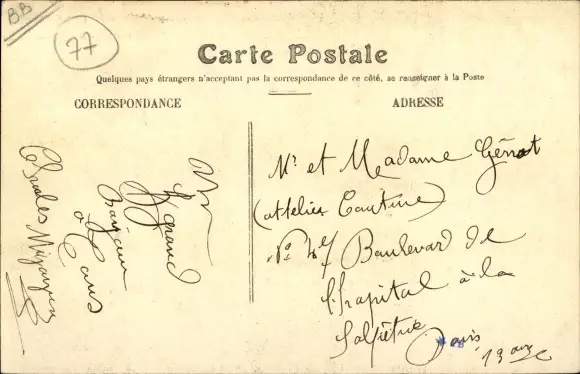 BB
77
Carte Postale
Quelques pays étrangers n'acceptant pas la correspondance de ce côté, se renseigner à la Poste
CORRESPONDANCE
ADRESSE
Un
grand
Bonjour
à
Tous
Charles
Mr et Madame Génot
(attelier Couture)
Boulevard de
l'hopital à la
Salpétrière
Paris
13 arr